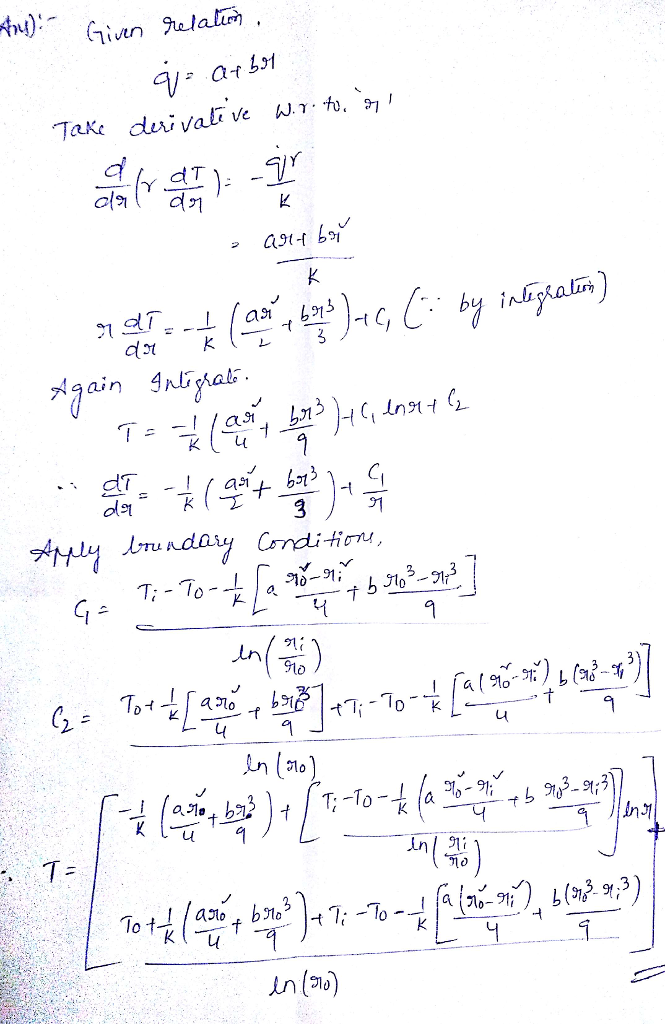 Ans):- Given relation.
q̇ = a+br
Take derivative w.r.to. 'r'
d/dr (r dT/dr) = -q̇r/K
= ar+br²/K
r dT/dr = -1/K (ar²/2 + br³/3) + C₁ (∵ by integration)
Again Integrate.
T = -1/K (ar²/4 + br³/9) + C₁ lnr + C₂
∴ dT/dr = -1/K (ar²/2 + br³/3) + C₁/r
Apply boundary Conditions,
C₁ = Ti - To - 1/K [a ro²-ri²/4 + b ro³-ri³/9] / ln(ri/ro)
C₂ = To + 1/K [aro²/4 + bro³/9] + Ti - To - 1/K [a(ro²-ri²)/4 + b(ro³-ri³)/9] / ln(ro)
∴ T = [-1/K (aro²/4 + bro³/9) + [Ti - To - 1/K (a ro²-ri²/4 + b ro³-ri³/9) / ln(ri/ro)] lnr +
To + 1/K (aro²/4 + bro³/9) + Ti - To - 1/K [a(ro²-ri²)/4 + b(ro³-ri³)/9] / ln(ro)]